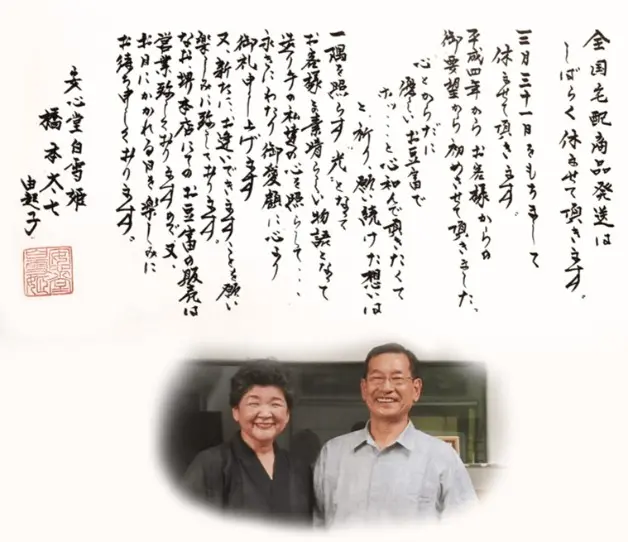 全国宅配商品発送は
しばらく休ませて頂きます。
三月三十一日をもちまして
休ませて頂きます。
平成四年からお客様からの
御要望から初めさせて頂きました、
心とからだに
優しいお豆富で
ホッ…と心和んで頂きたくて
と、祈り、願い続けた想いは
一隅を照らす〝光〟となって
お客様と素晴らしい物語となって
造り手の私達の心を照らして・・・
永きにわたり御愛顧に心より
御礼申し上げます。
又、新たにお逢いできますことを願い
楽しみに致しております。
なお堺本店にてのお豆富の販売は
営業致しておりますので又、
お目にかかれる日を楽しみに
お待ち申しております。
安心堂白雪姫
橋本太七
由起子